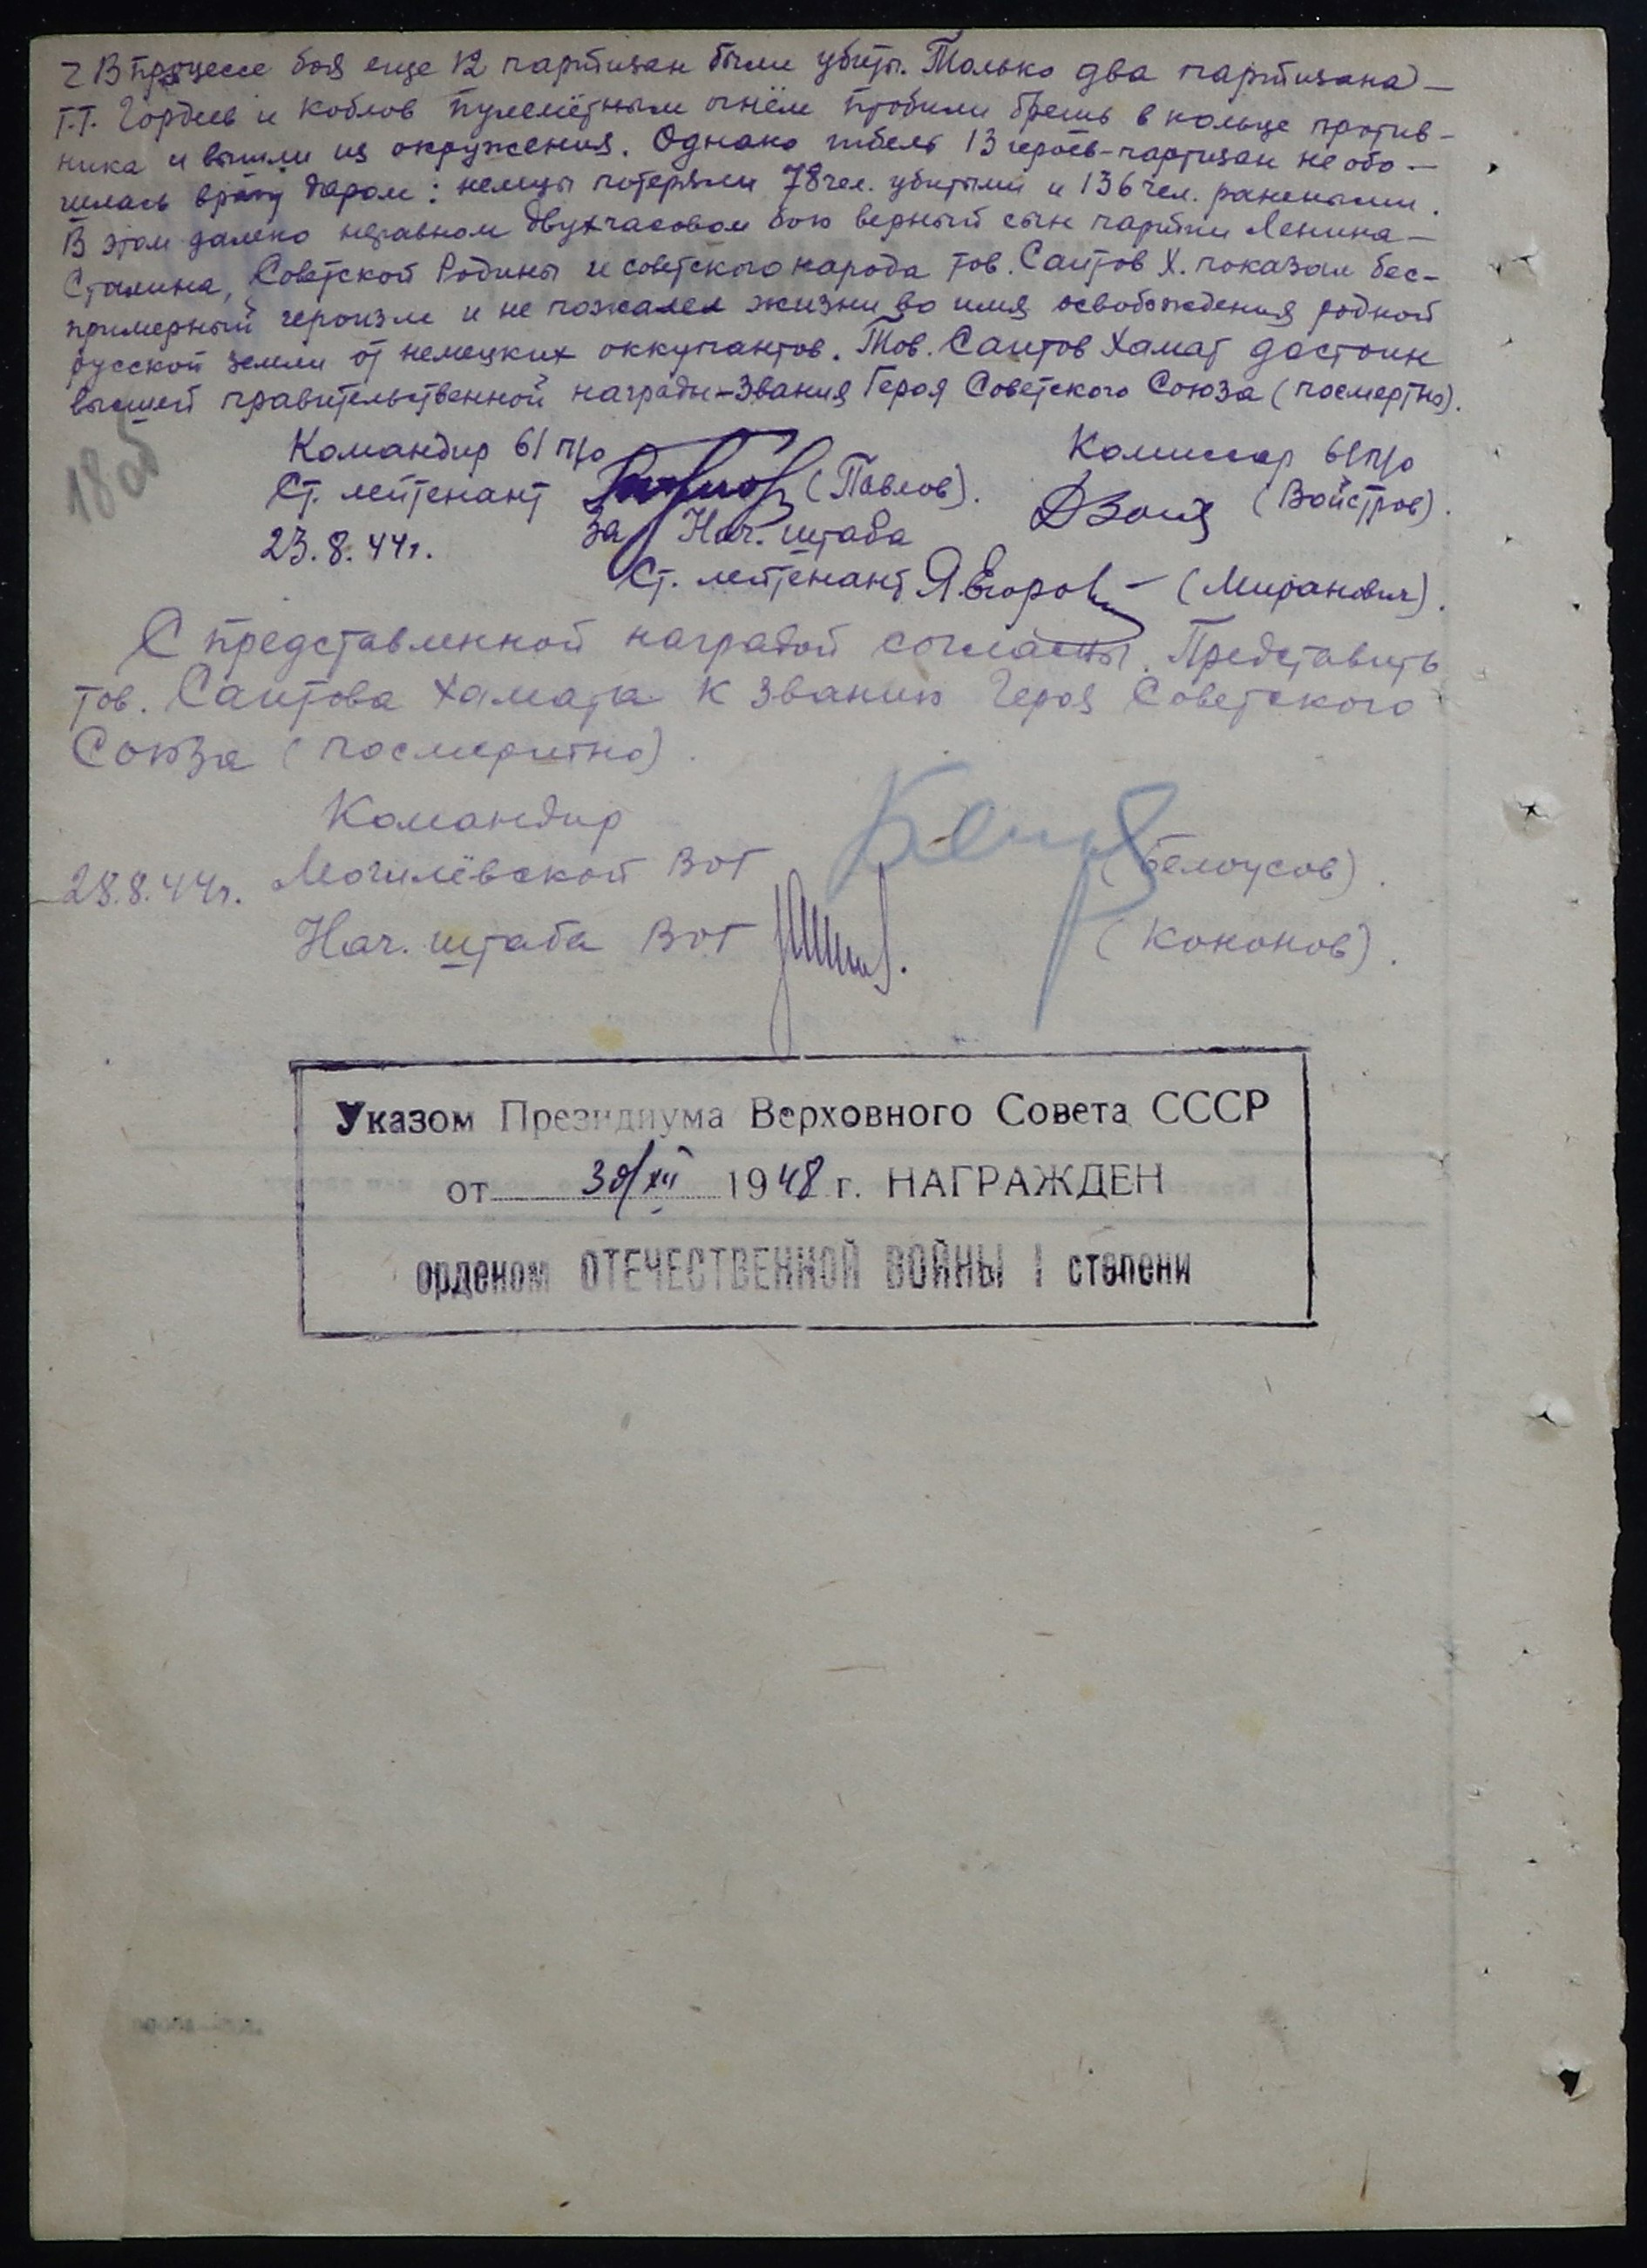 В процессе боя еще 12 партизан были убиты. Только два партизана —
т.т. Гордеев и Коблов пулемётным огнём пробили брешь в кольце против-
ника и вышли из окружения. Однако гибель 13 героев-партизан не обо-
шлась врагу даром: немцы потеряли 78 чел. убитыми и 136 чел. ранеными.
В этом далеко неравном двухчасовом бою верный сын партии Ленина —
Сталина, Советской Родины и советского народа тов. Саитов Х. показал бес-
примерный героизм и не пожалел жизни во имя освобождения родной
русской земли от немецких оккупантов. Тов. Саитов Хамат достоин
высшей правительственной награды-звания Героя Советского Союза (посмертно).
18об
Командир 61 п/о
Комиссар 61 п/о
Ст. лейтенант (Павлов).
(Войстров).
23.8.44г.
За Нач. штаба
Ст. лейтенант Я.Егоров (Миранович).
С представленной наградой согласны. Представить
тов. Саитова Хамата к званию Героя Советского
Союза (посмертно).
Командир
28.8.44г. Могилёвской ВОГ (Белоусов).
Нач. штаба ВОГ (Кононов).
Указом Президиума Верховного Совета СССР
от 30/XII 1948 г. НАГРАЖДЕН
орденом ОТЕЧЕСТВЕННОЙ ВОЙНЫ I степени